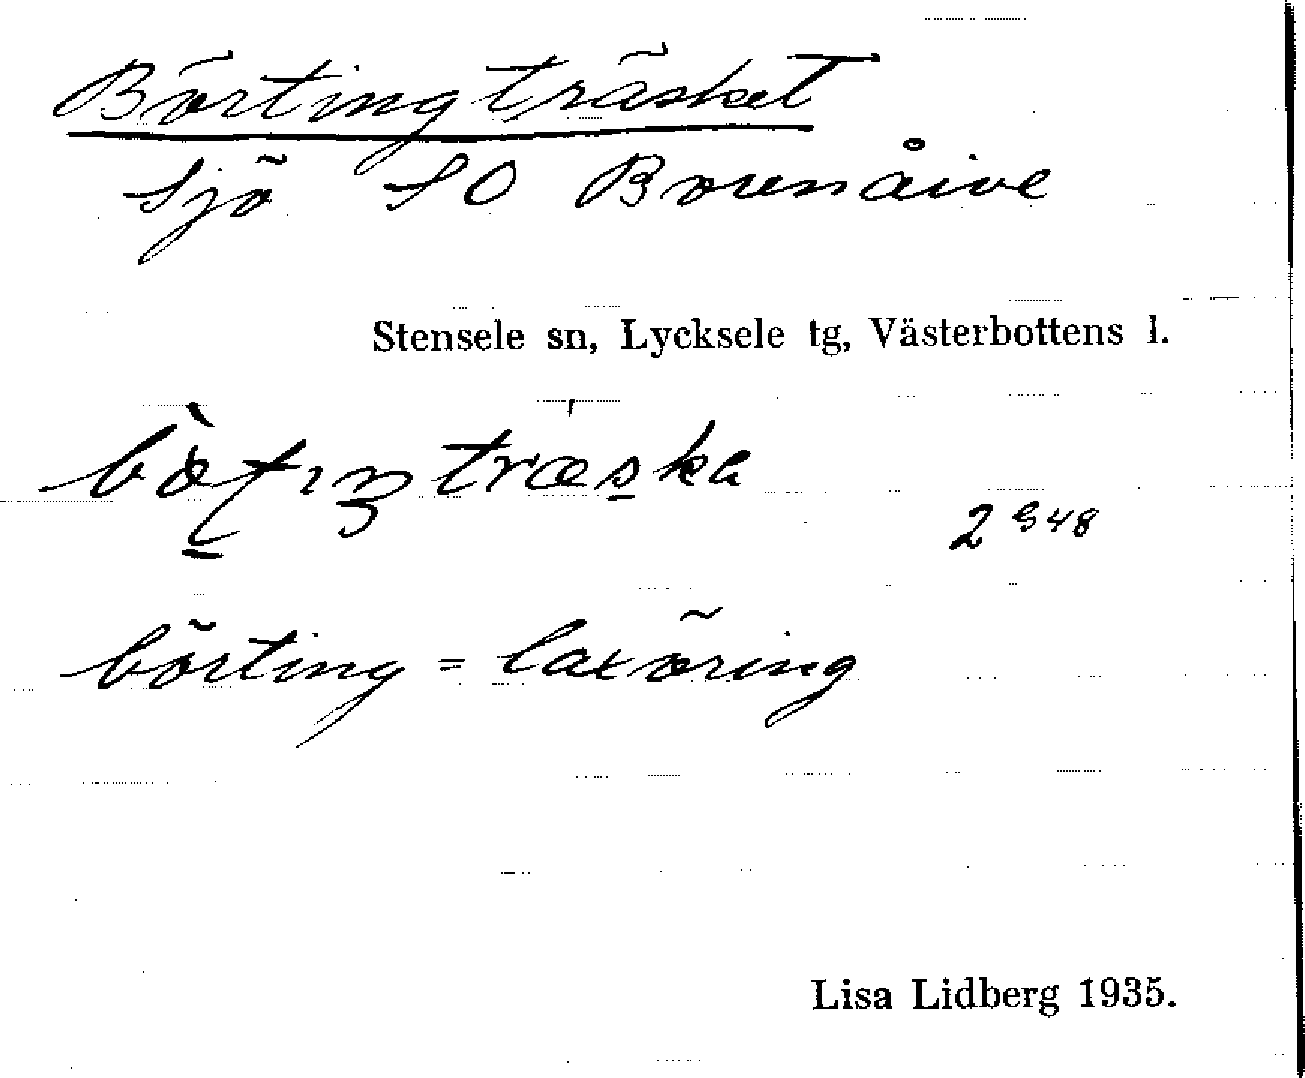 Börtingträsket
sjö SO Borenåive
Stensele sn, Lycksele tg, Västerbottens l.
träska
2 G 48
börting = laxöring
Lisa Lidberg 1935.